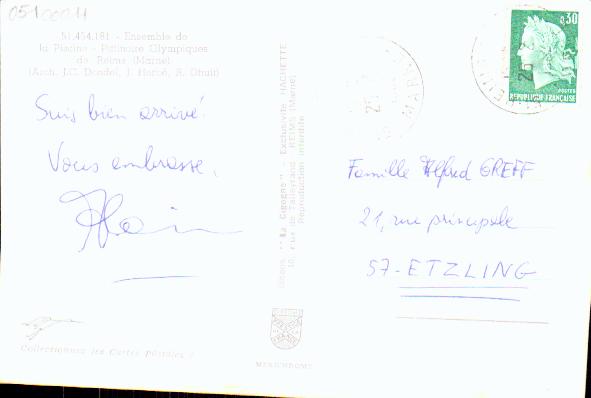 05100011
51.454.181 - Ensemble de
la Piscine - Patinoire Olympiques
de Reims (Marne)
(Arch. J.C. Dondel, J. Hervé, R. Dhuit)
Suis bien arrivé.
Vous embrasse.
Alain
Collectionnez les Cartes postales !
"La Cigogne" - Exclusivité HACHETTE
10, rue de Talleyrand REIMS (Marne)
Reproduction interdite
MEXICHROME
0,30
POSTES
REPUBLIQUE FRANÇAISE
Famille Alfred GREFF
21, rue principale
57-ETZLING